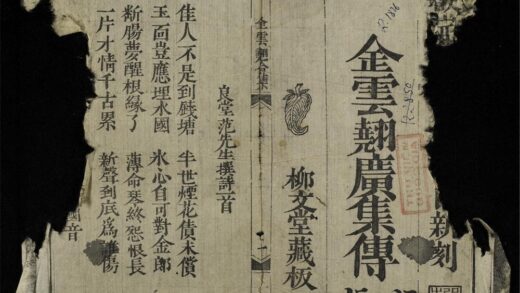 新刻
金雲翹廣集傳
柳文堂藏板
良堂范先生撰詩一首
佳人不是到錢塘 半世煙花債未償
玉面豈應埋水國 氷心自可對金郎
斷腸夢醒根緣了 薄命琴終怨恨長
一片才情千古累 新聲到底為誰傷
國音